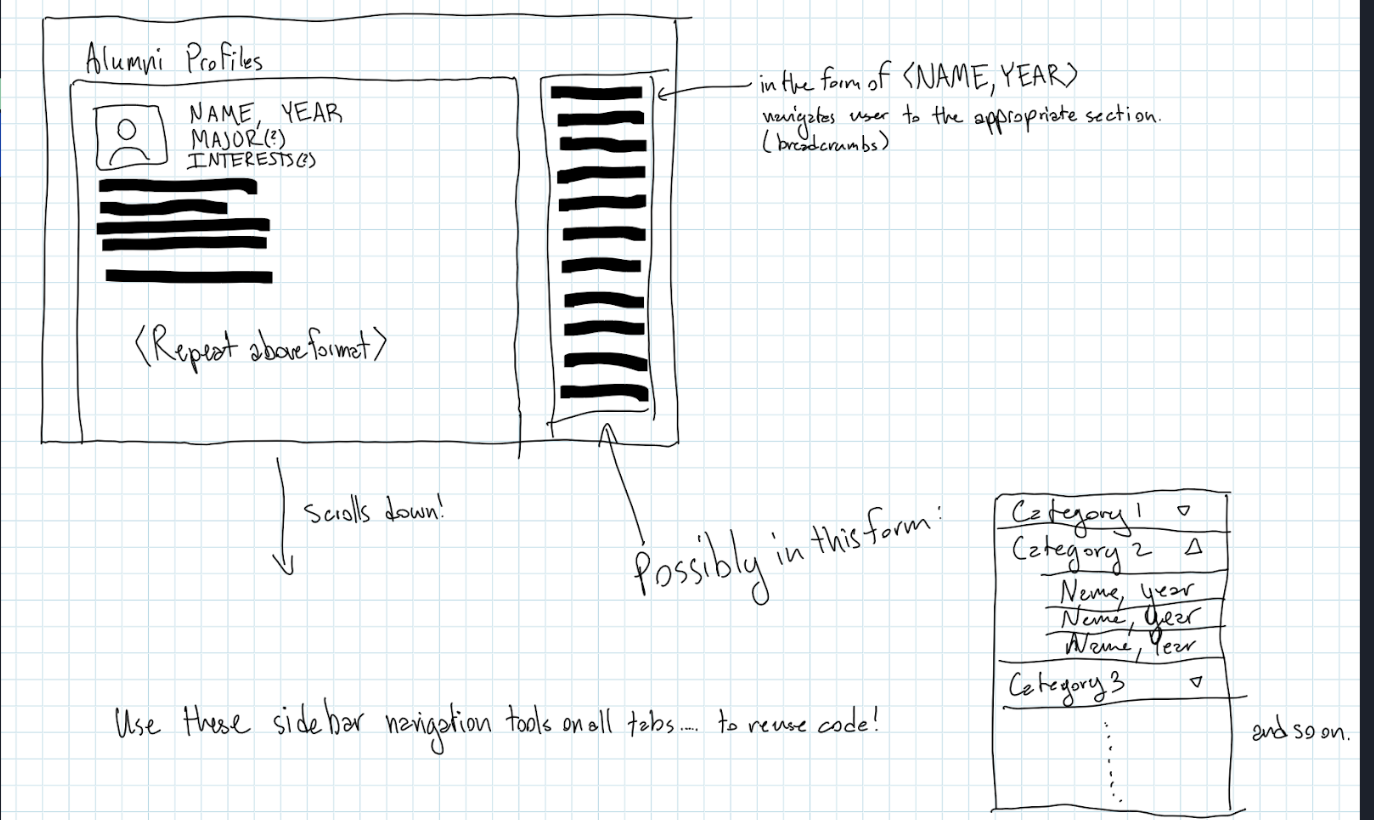 Alumni Profiles
NAME, YEAR
MAJOR(?)
INTERESTS(?)
<Repeat above format>
in the form of <NAME, YEAR>
navigates user to the appropriate section.
(breadcrumbs)
Scrolls down!
Possibly in this form:
Category 1
Category 2
Name, year
Name, year
Name, Year
Category 3
and so on.
Use these sidebar navigation tools on all tabs.... to reuse code!